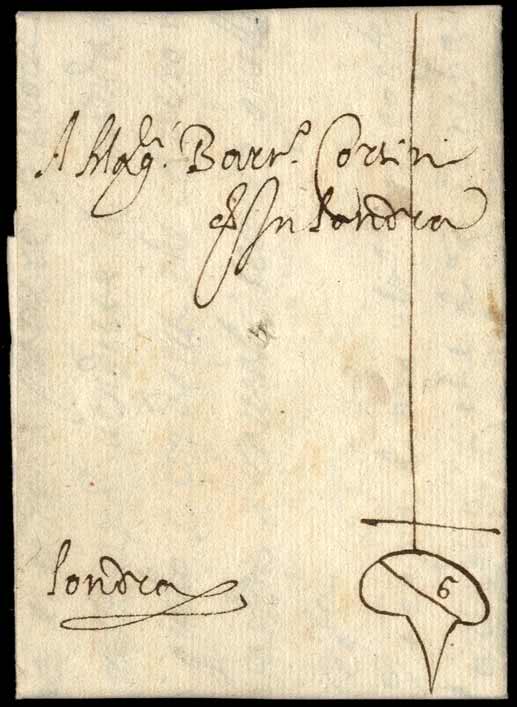 Al Mag.co Bar.o Corsini
In Londra
Londra
6